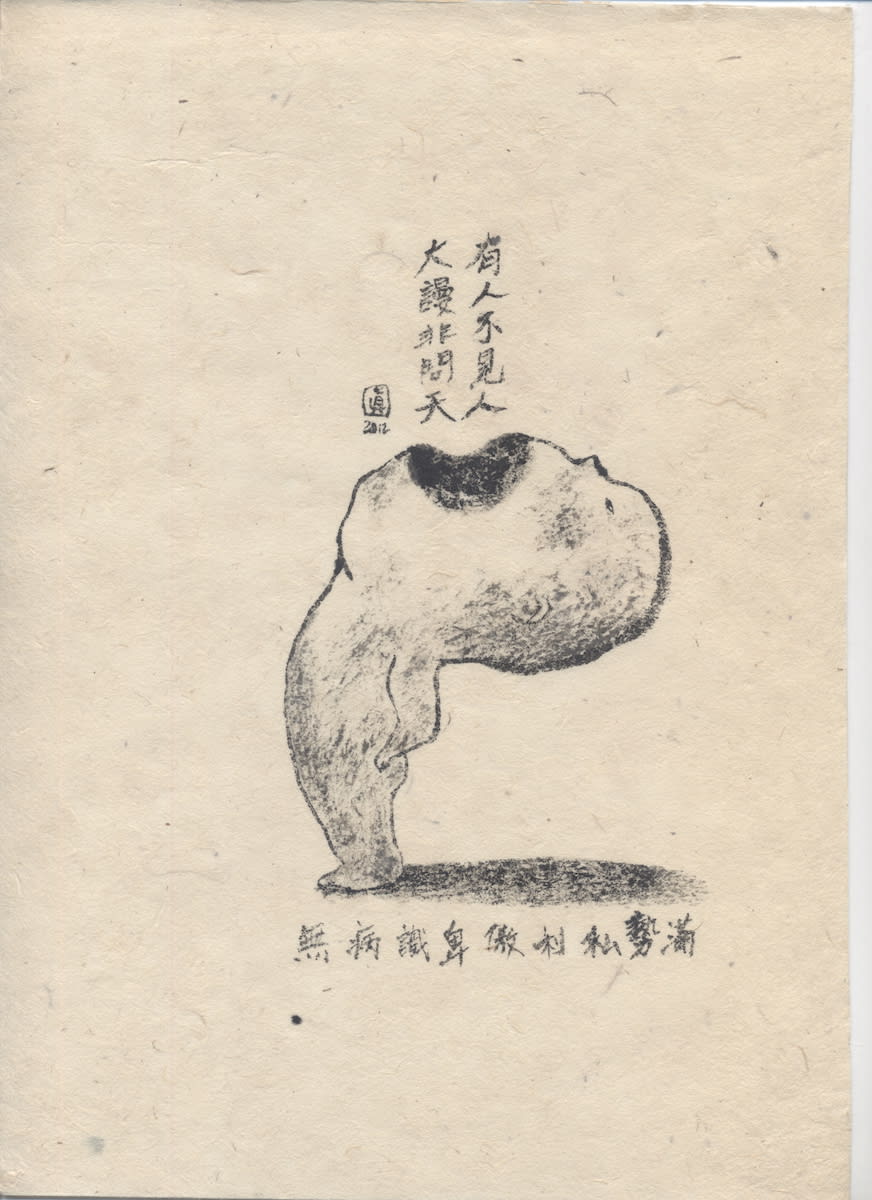 有人不見人
大謾非問天
眞
2012
滿勢私利傲卑識病無